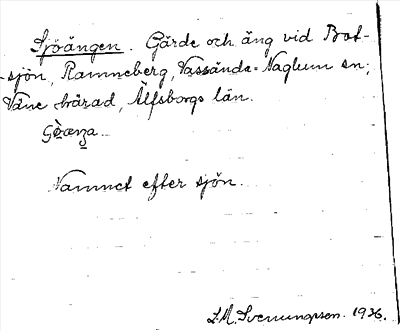 Sjöängen. Gärde och äng vid Bot-
sjön, Ramneberg, Vassända-Naglum sn;
Väne härad, Älfsborgs län.
Namnet efter sjön.
1936.